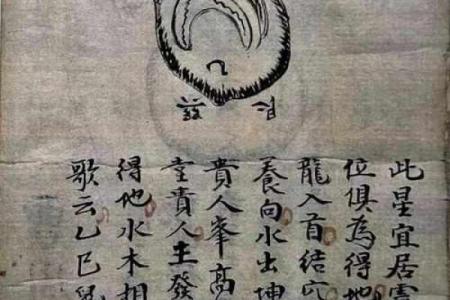 此星宜居
位俱為得地
龍入首結穴
養向水出坤
貴人峯高
堂貴人主發
得他水木相
歌云乙巳